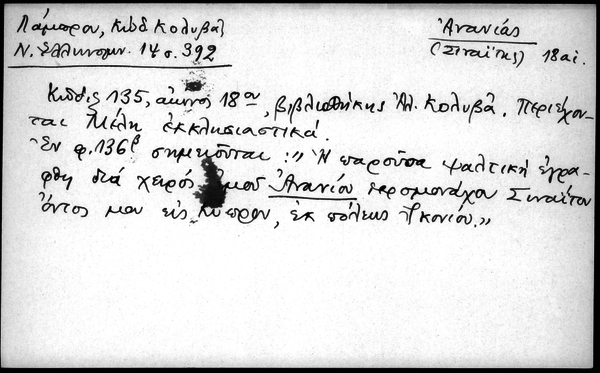 Λάμπρου, Κώδ Κολυβᾶ
Ν. Ἑλληνομν. 14 σ. 392
Ἀνανίας
(Σιναΐτης) 18 αἰ.
Κώδιξ 135, αἰῶνος 18ου, βιβλιοθήκης Ἀλ. Κολυβᾶ. Περιέχον-
ται Μέλη ἐκκλησιαστικά.
Ἐν φ. 136β σημειοῦται: "Ἡ παροῦσα ψαλτική ἐγρά-
φη διά χειρός ἐμοῦ Ἀνανίου ἱερομονάχου Σιναΐτου
ὄντος μου εἰς Κύπρον, ἐκ πόλεως Ἰκονίου."